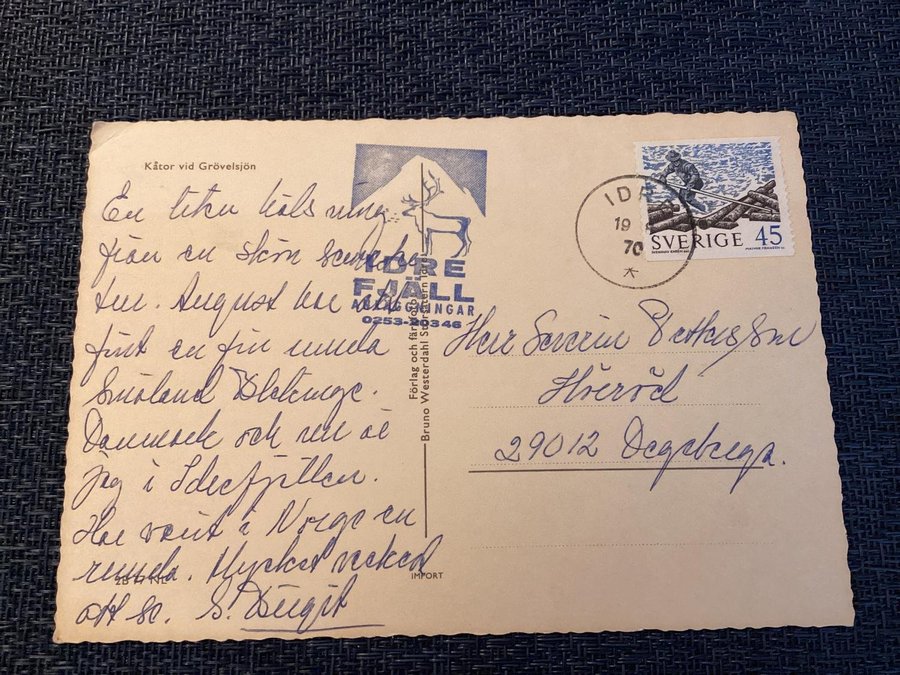 Kåtor vid Grövelsjön
En liten hälsning
från en skön semes
ter. August har
först en fin runda
Småland Blekinge.
Danmark och nu är
jag i Idrefjällen.
Har varit i Norge en
runda. Mycket vackert
att se. S. Birgit
IDRE
FJÄLL
ANLÄGGNINGAR
0253-20346
Förlag och
Bruno Westerdahl
IMPORT
IDRE
19
70
SVERIGE 45
Herr Severin
Höeröd
29012 Degeberga.